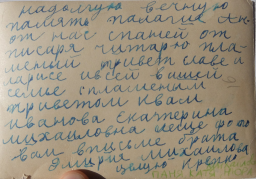 надолгую вечную
память палагие Ан
от нас спаней от
писаря читарю пла
менный привет славе и
ларисе ивсей вашей
семье спламеным
приветом квам
иванова екатерина
михаиловна иеще фото
вам вписме брата
михаилова
целую крепко